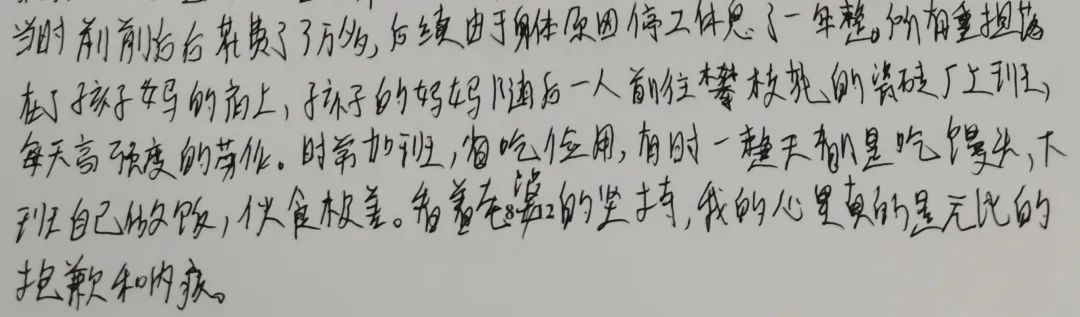 当时前前后后花费了3万多,后续由于身体原因停工休息了一年整。所有重担落
在了孩子妈的肩上,孩子的妈妈随后一人前往攀枝花的瓷砖厂上班,
每天高强度的劳作。时常加班,省吃俭用,有时一整天都是吃馒头,下
班自己做饭,伙食极差。看着老婆的坚持,我的心里真的是无比的
抱歉和内疚。